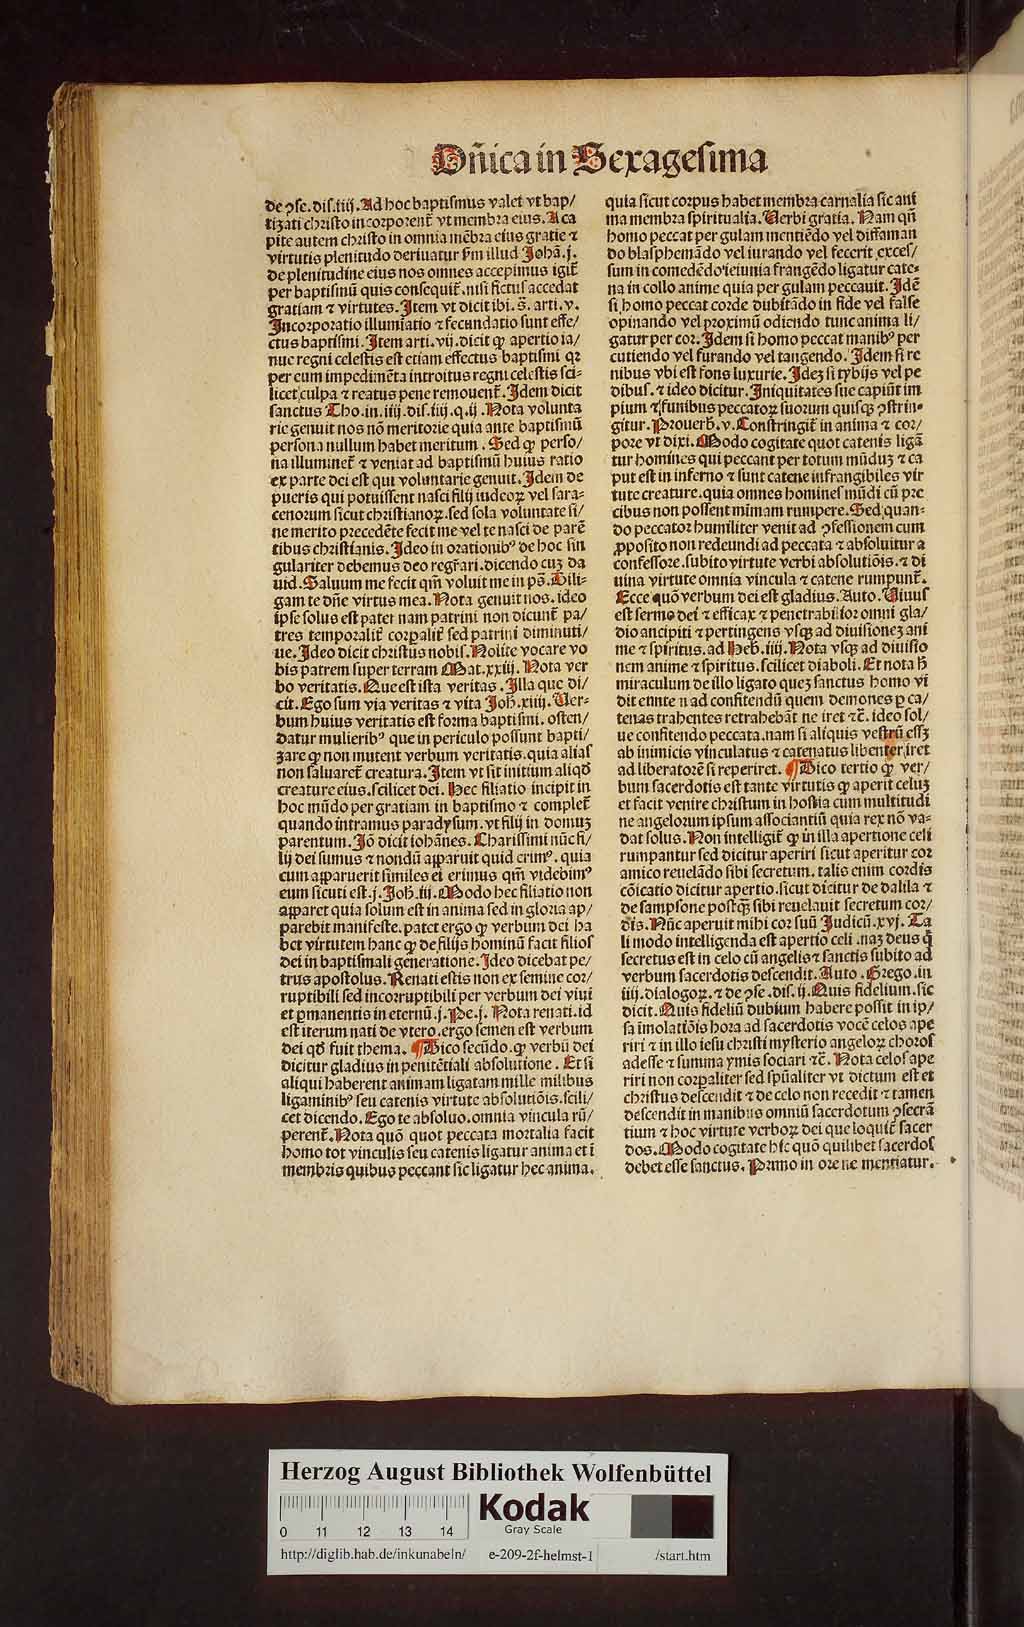 Dñica in Sexagesima
de ꝯse. dis. iiij. Ad hoc baptismus valet vt bap/
tizati christo incorporent᷑ vt membra eius. A ca
pite autem christo in omnia mēbra eius gratie ⁊
virtutis plenitudo deriuatur ẜm illud Johā. j.
de plenitudine eius nos omnes accepimus igit᷑
per baptismū quis consequit᷑. nisi fictus accedat
gratiam ⁊ virtutes. Item vt dicit ibi. s̄. arti. v.
Incorporatio illumiatio ⁊ fecundatio sunt effe/
ctus baptismi. Item arti. vij. dicit ꝙ apertio ia/
nue regni celestis est etiam effectus baptismi qꝛ
per eum impedimēta introitus regni celestis sci-
licet culpa ⁊ reatus pene remouent᷑. Idem dicit
sanctus Tho. in. iiij. dis. iiij. q. ij. Nota volunta
rie genuit nos nō meritorie quia ante baptismū
persona nullum habet meritum. Sed ꝙ perso/
na illuminet᷑ ⁊ veniat ad baptismū huius ratio
ex parte dei est qui voluntarie genuit. Idem de
pueris qui potuissent nasci filij iudeoꝝ vel sara-
cenorum sicut christianoꝝ. sed sola voluntate si/
ne merito precedēte fecit me vel te nasci de parē
tibus christianis. Ideo in orationibꝰ de hoc sin
gulariter debemus deo regr̄ari. dicendo cuꝫ da
uid. Saluum me fecit qm̄ voluit me in pō. Dili-
gam te dñe virtus mea. Nota genuit nos. ideo
ipse solus est pater nam patrini non dicunt᷑ pa/
tres temporalit᷑ corꝑalit᷑ sed patrini diminuti/
ue. Ideo dicit christus nobis. Nolite vocare vo
bis patrem super terram Mat. xxiij. Nota ver
bo veritatis. Que est ista veritas. Illa que di/
cit. Ego sum via veritas ⁊ vita Joh̄. xiiij. Uer-
bum huius veritatis est forma baptismi. osten/
datur mulieribꝰ que in periculo possunt bapti/
zare ꝙ non mutent verbum veritatis. quia alias
non saluaret᷑ creatura. Item vt sit initium aliqd̄
creature eius. scilicet dei. Hec filiatio incipit in
hoc mūdo per gratiam in baptismo ⁊ complet᷑
quando intramus paradysum. vt filij in domuꝫ
parentum. Jō dicit iohānes. Charissimi nūc fi/
lij dei sumus ⁊ nondū apparuit quid erimꝰ. quia
cum apparuerit similes ei erimus qm̄ videbimꝰ
eum sicuti est. j. Joh̄. iij. Modo hec filiatio non
apparet quia solum est in anima sed in gloria ap/
parebit manifeste. patet ergo ꝙ verbum dei ha
bet virtutem hanc ꝙ de filijs hominū facit filios
dei in baptismali generatione. Ideo dicebat pe/
trus apostolus. Renati estis non ex semine cor/
ruptibili sed incorruptibili per verbum dei viui
et ꝑmanentis in eternū. j. Pe. j. Nota renati. id
est iterum nati de vtero. ergo semen est verbum
dei qd̄ fuit thema. ¶ Dico secūdo. ꝙ verbū dei
dicitur gladius in penitētiali absolutione. Et si
aliqui haberent animam ligatam mille milibus
ligaminibꝰ seu catenis virtute absolutiōis. scili/
cet dicendo. Ego te absoluo. omnia vincula rū/
perent᷑. Nota quō quot peccata mortalia facit
homo tot vinculis seu catenis ligatur anima et ī
membris quibus peccant sic ligatur hec anima.
quia sicut corpus habet membra carnalia sic ani
ma membra spiritualia. Uerbi gratia. Nam qn̄
homo peccat per gulam mentiēdo vel diffaman
do blasphemādo vel iurando vel fecerit exces/
sum in comedēdo ieiunia frangēdo ligatur cate-
na in collo anime quia per gulam peccauit. Idē
si homo peccat corde dubitādo in fide vel false
opinando vel proximū odiendo tunc anima li/
gatur per cor. Idem si homo peccat manibꝰ per
cutiendo vel furando vel tangendo. Idem si re
nibus vbi est fons luxurie. Ideꝫ si tybijs vel pe
dibus. ⁊ ideo dicitur. Iniquitates sue capiūt im
pium ⁊ funibus peccatoꝝ suorum quisqꝫ ꝯstrin-
gitur. Prouerb̄. v. Constringit᷑ in anima ⁊ cor/
pore vt dixi. Modo cogitate quot catenis ligā
tur homines qui peccant per totum mūduꝫ ⁊ ca
put est in inferno ⁊ sunt catene infrangibiles vir
tute creature. quia omnes homines mūdi cū pre
cibus non possent minimam rumpere. Sed quan-
do peccator humiliter venit ad ꝯfessionem cum
ꝓposito non redeundi ad peccata ⁊ absoluitur a
confessore. subito virtute verbi absolutiōis. ⁊ di
uina virtute omnia vincula ⁊ catene rumpunt᷑.
Ecce quō verbum dei est gladius. Auto. Viuus
est sermo dei ⁊ efficax ⁊ penetrabilior omni gla/
dio ancipiti ⁊ pertingens vsqꝫ ad diuisioneꝫ ani
me ⁊ spiritus. ad Heb̄. iiij. Nota vsqꝫ ad diuisio
nem anime ⁊ spiritus. scilicet diaboli. Et nota h̄
miraculum de illo ligato queꝫ sanctus homo vi
dit eunte n ad confitendū quem demones ꝑ ca/
tenas trahentes retrahebāt ne iret ⁊c̄. ideo sol/
ue confitendo peccata. nam si aliquis vestrū essꝫ
ab inimicis vinculatus ⁊ catenatus libenter iret
ad liberatorē si reperiret. ¶ Dico tertio ꝙ ver/
bum sacerdotis est tante virtutis ꝙ aperit celuꝫ
et facit venire christum in hostia cum multitudi
ne angelorum ipsum associantiū quia rex nō va-
dat solus. Non intelligit᷑ ꝙ in illa apertione celi
rumpantur sed dicitur aperiri sicut aperitur cor
amico reuelādo sibi secretum. talis enim cordis
cōicatio dicitur apertio. sicut dicitur de dalila ⁊
de sampsone postqꝫ sibi reuelauit secretum cor/
dis. Nūc aperuit mihi cor suū Judicū. xvj. Ta
li modo intelligenda est apertio celi. naꝫ deus q̄
secretus est in celo cū angelis ⁊ sanctis subito ad
verbum sacerdotis descendit. Auto. Grego. in
iiij. dialogoꝝ. ⁊ de ꝯse. dis. ij. Quis fidelium. sic
dicit. Quis fideliū dubium habere possit in ip/
sa īmolatiōis hora ad sacerdotis vocē celos ape
riri ⁊ in illo iesu christi mysterio angeloꝝ choros
adesse ⁊ summa ymis sociari ⁊c̄. Nota celos ape
riri non corꝑaliter sed spūaliter vt dictum est et
christus descendit ⁊ de celo non recedit ⁊ tamen
descendit in manibus omniū sacerdotum ꝯsecrā
tium ⁊ hoc virtute verboꝝ dei que loquit᷑ sacer
dos. Modo cogitate hic quō quilibet sacerdos
debet esse sanctus. Primo in ore ne mentiatur.
Herzog August Bibliothek Wolfenbüttel
Kodak
Gray Scale
0 11 12 13 14
http://diglib.hab.de/inkunabeln/ e-209-2f-helmst-1 /start.htm